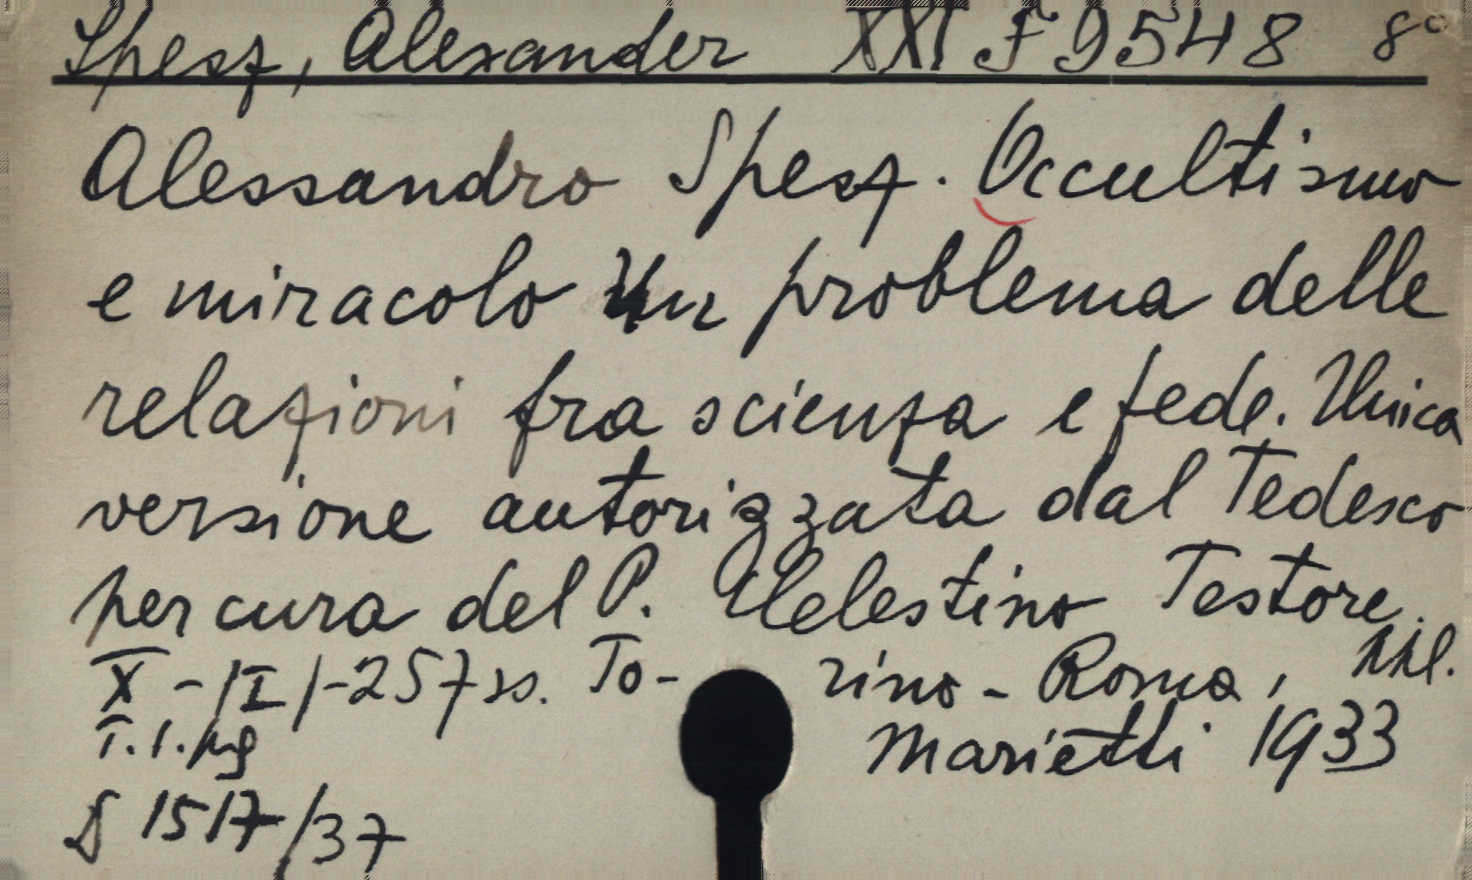 Spesz, Alexander XXI F 9548 8°
Alessandro Spesz. Occultismo
e miracolo Un problema delle
relazioni fra scienza e fede. Unica
versione autorizzata dal Tedesco
per cura del P. Celestino Testore.
X-/I/-257 ss. To- rino - Roma,
T. 1. Marietti 1933
1517/37